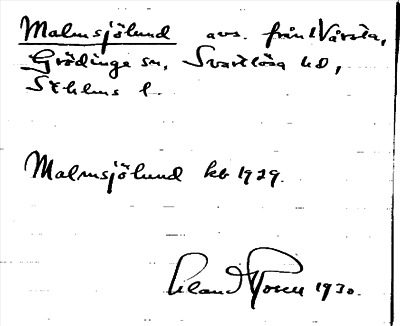 Malmsjölund avs. från 1 Vårsta,
Grödinge sn, Svartlösa hd,
Sthlms l.
Malmsjölund kb 1929.
Erland Rosell 1930.